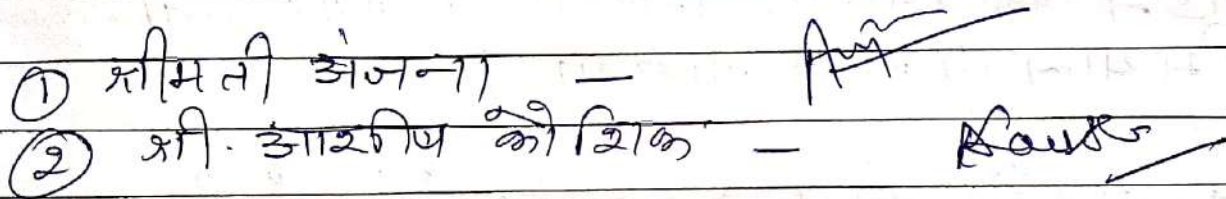 ① श्रीमती अंजना —
② श्री. आशीष कौशिक —